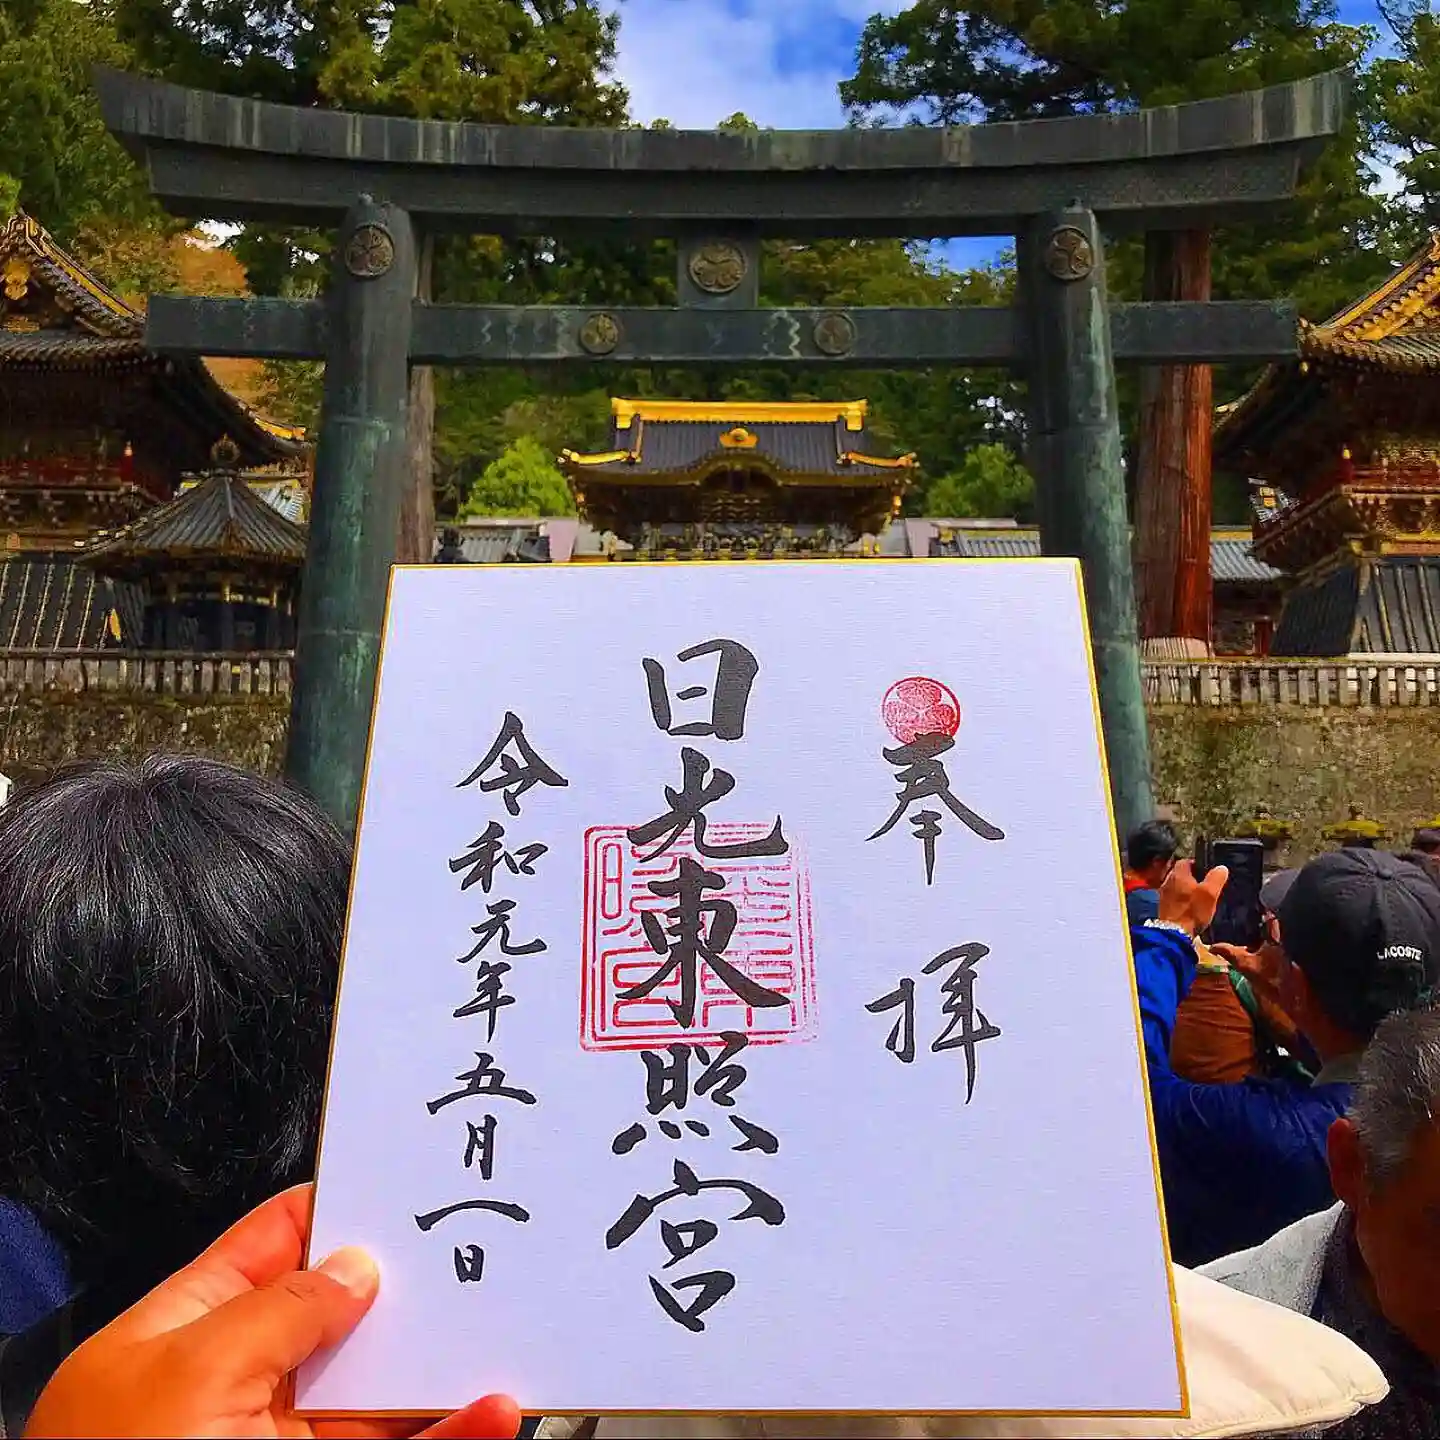 奉拝
日光東照宮
令和元年五月一日
LACOSTE